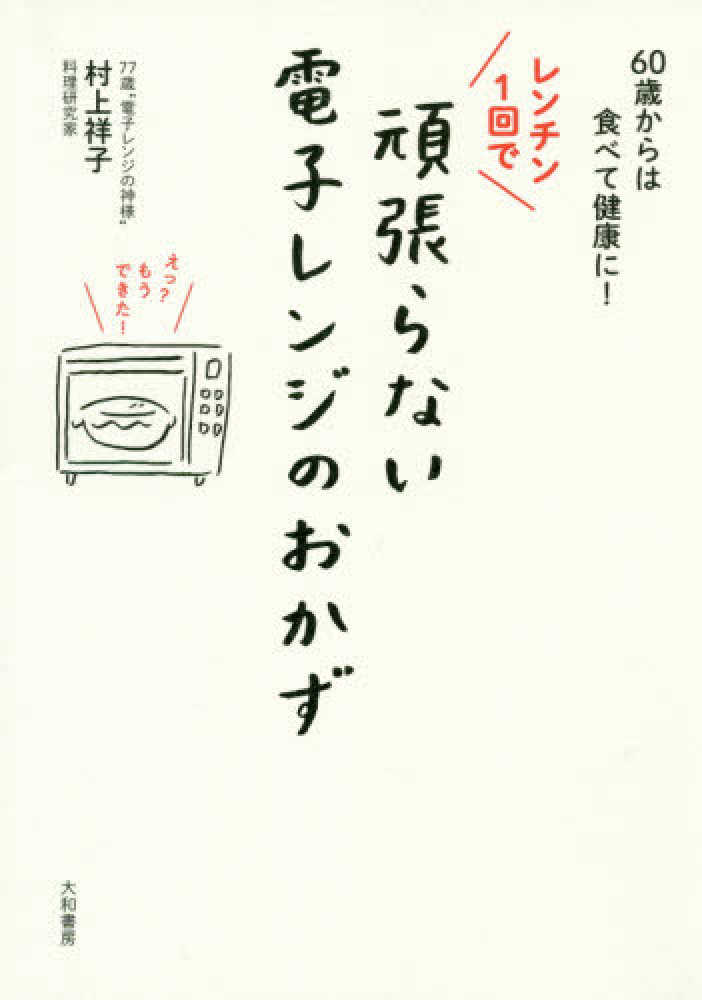 60歳からは
食べて健康に!
レンチン
1回で
頑張らない
電子レンジのおかず
77歳“電子レンジの神様”
村上祥子
料理研究家
えっ?
もう
できた!
大和書房